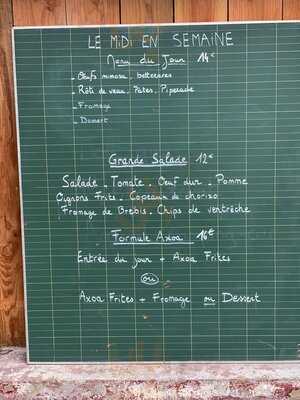 LE MIDI EN SEMAINE
Menu du Jour 14€
- Œufs mimosa, betteraves
- Rôti de veau, Pâtes, Piperade
- Fromage
- Dessert
Grande Salade 12€
Salade - Tomate - Oeuf dur - Pomme
Oignons Frits - Copeaux de chorizo
Fromage de Brebis - Chips de ventrèche
Formule Axoa 16€
Entrée du jour + Axoa Frites
ou
Axoa Frites + Fromage ou Dessert